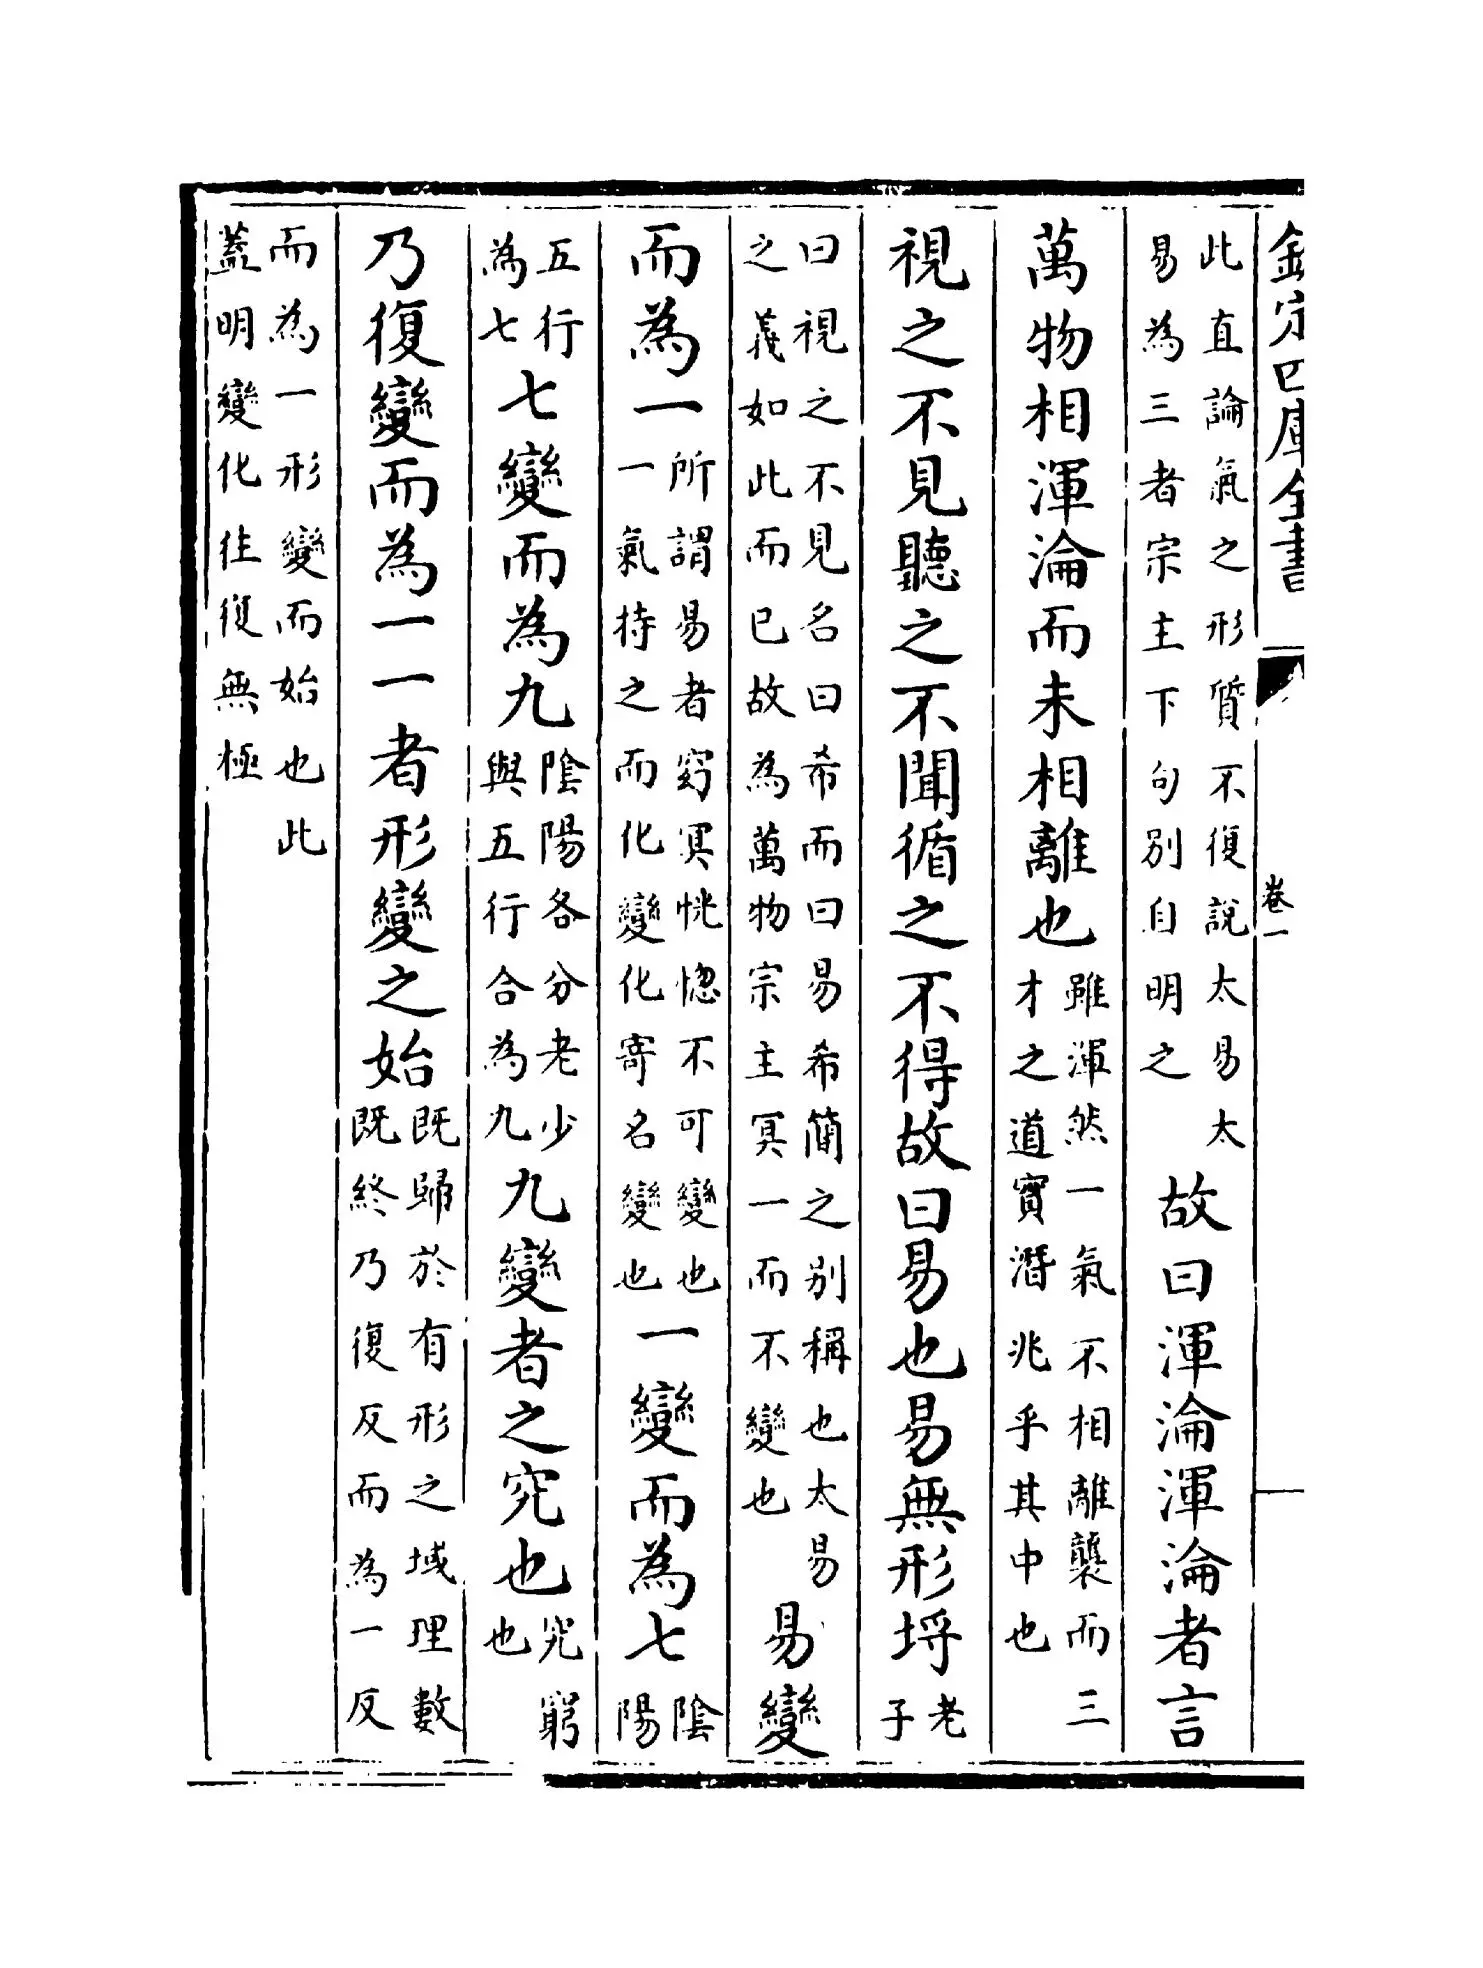 欽定四庫全書
卷一
此直論氣之形質不復說太易太
易為三者宗主下句別自明之
故曰渾淪渾淪者言
萬物相渾淪而未相離也
雖渾然一氣不相離襲而三
才之道實潛兆乎其中也
視之不見聽之不聞循之不得故曰易也易無形埒
老
子
曰視之不見名曰希而曰易希簡之別稱也太易
之義如此而已故為萬物宗主冥一而不變也
易變
而為一
所謂易者窈冥恍惚不可變也
一氣恃之而化變化寄名變也
一變而為七
陰
陽
五行
為七
七變而為九
陰陽各分老少
與五行合為九
九變者之究也
究窮
也
乃復變而為一一者形變之始
既歸於有形之域理數
既終乃復反而為一反
而為一形變而始也此
蓋明變化往復無極